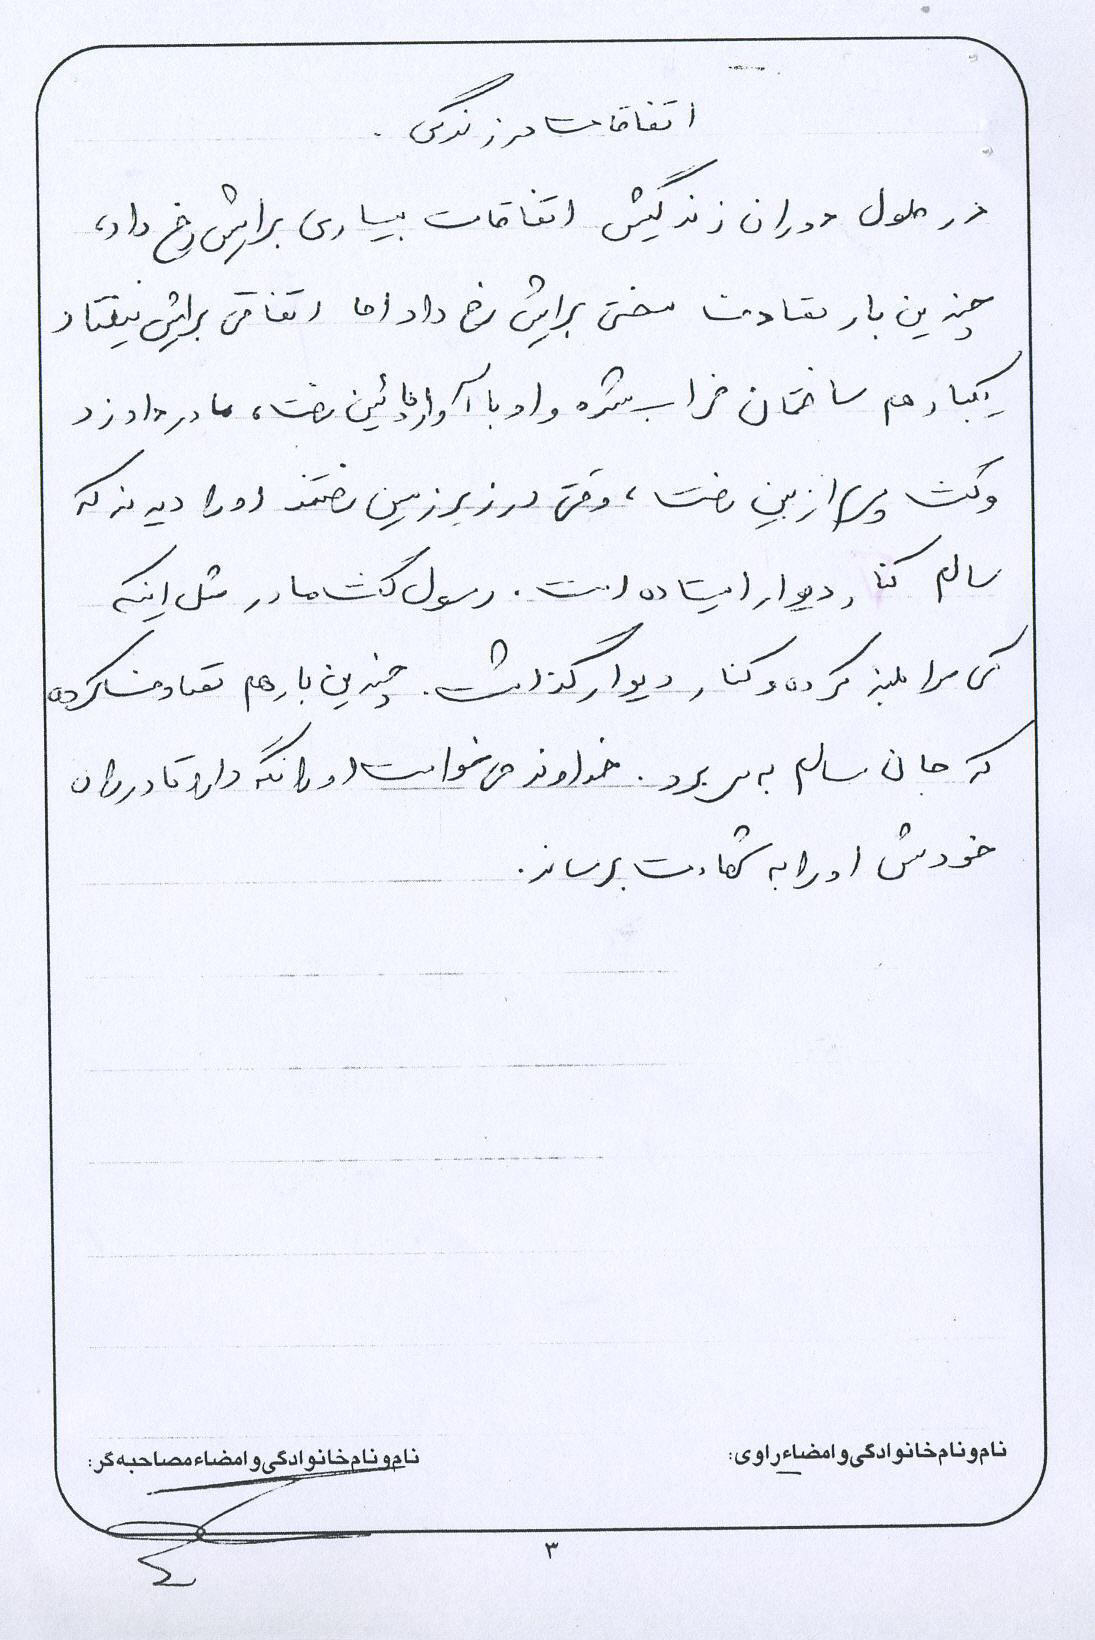 اتفاقات در زندگی .
در طول دوران زندگیش اتفاقات بسیاری برایش رخ داد،
چندین بار تصادف سختی برایش رخ داد اما اتفاقی برایش نیفتاد
یکبار هم ساختمان خراب شده و او با آوار پائین رفت، مادر داد زد
و گفت پسرم از بین رفت، وقتی در زیرزمین رفتند او را دیدند که
سالم کنار دیوار ایستاده است . رسول گفت مادر مثل اینکه
کسی مرا بلند کرده و کنار دیوار گذاشت . چندین بار هم تصادف کرده
که جان سالم به سر برد . خداوند می خواست او را نگه دارد تا در راه
خودش او را به شهادت برساند .
نام و نام خانوادگی و امضاء راوی:
نام و نام خانوادگی و امضاء مصاحبه گر:
۳